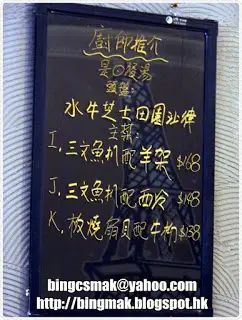 廚師推介
是日餐湯
頭盤:
水牛芝士田園沙律
主菜:
I. 三文魚扒配羊架 $168
J. 三文魚扒配西冷 $148
K. 板燒扇貝配牛柳 $138
bingcsmak@yahoo.com
http://bingmak.blogspot.hk